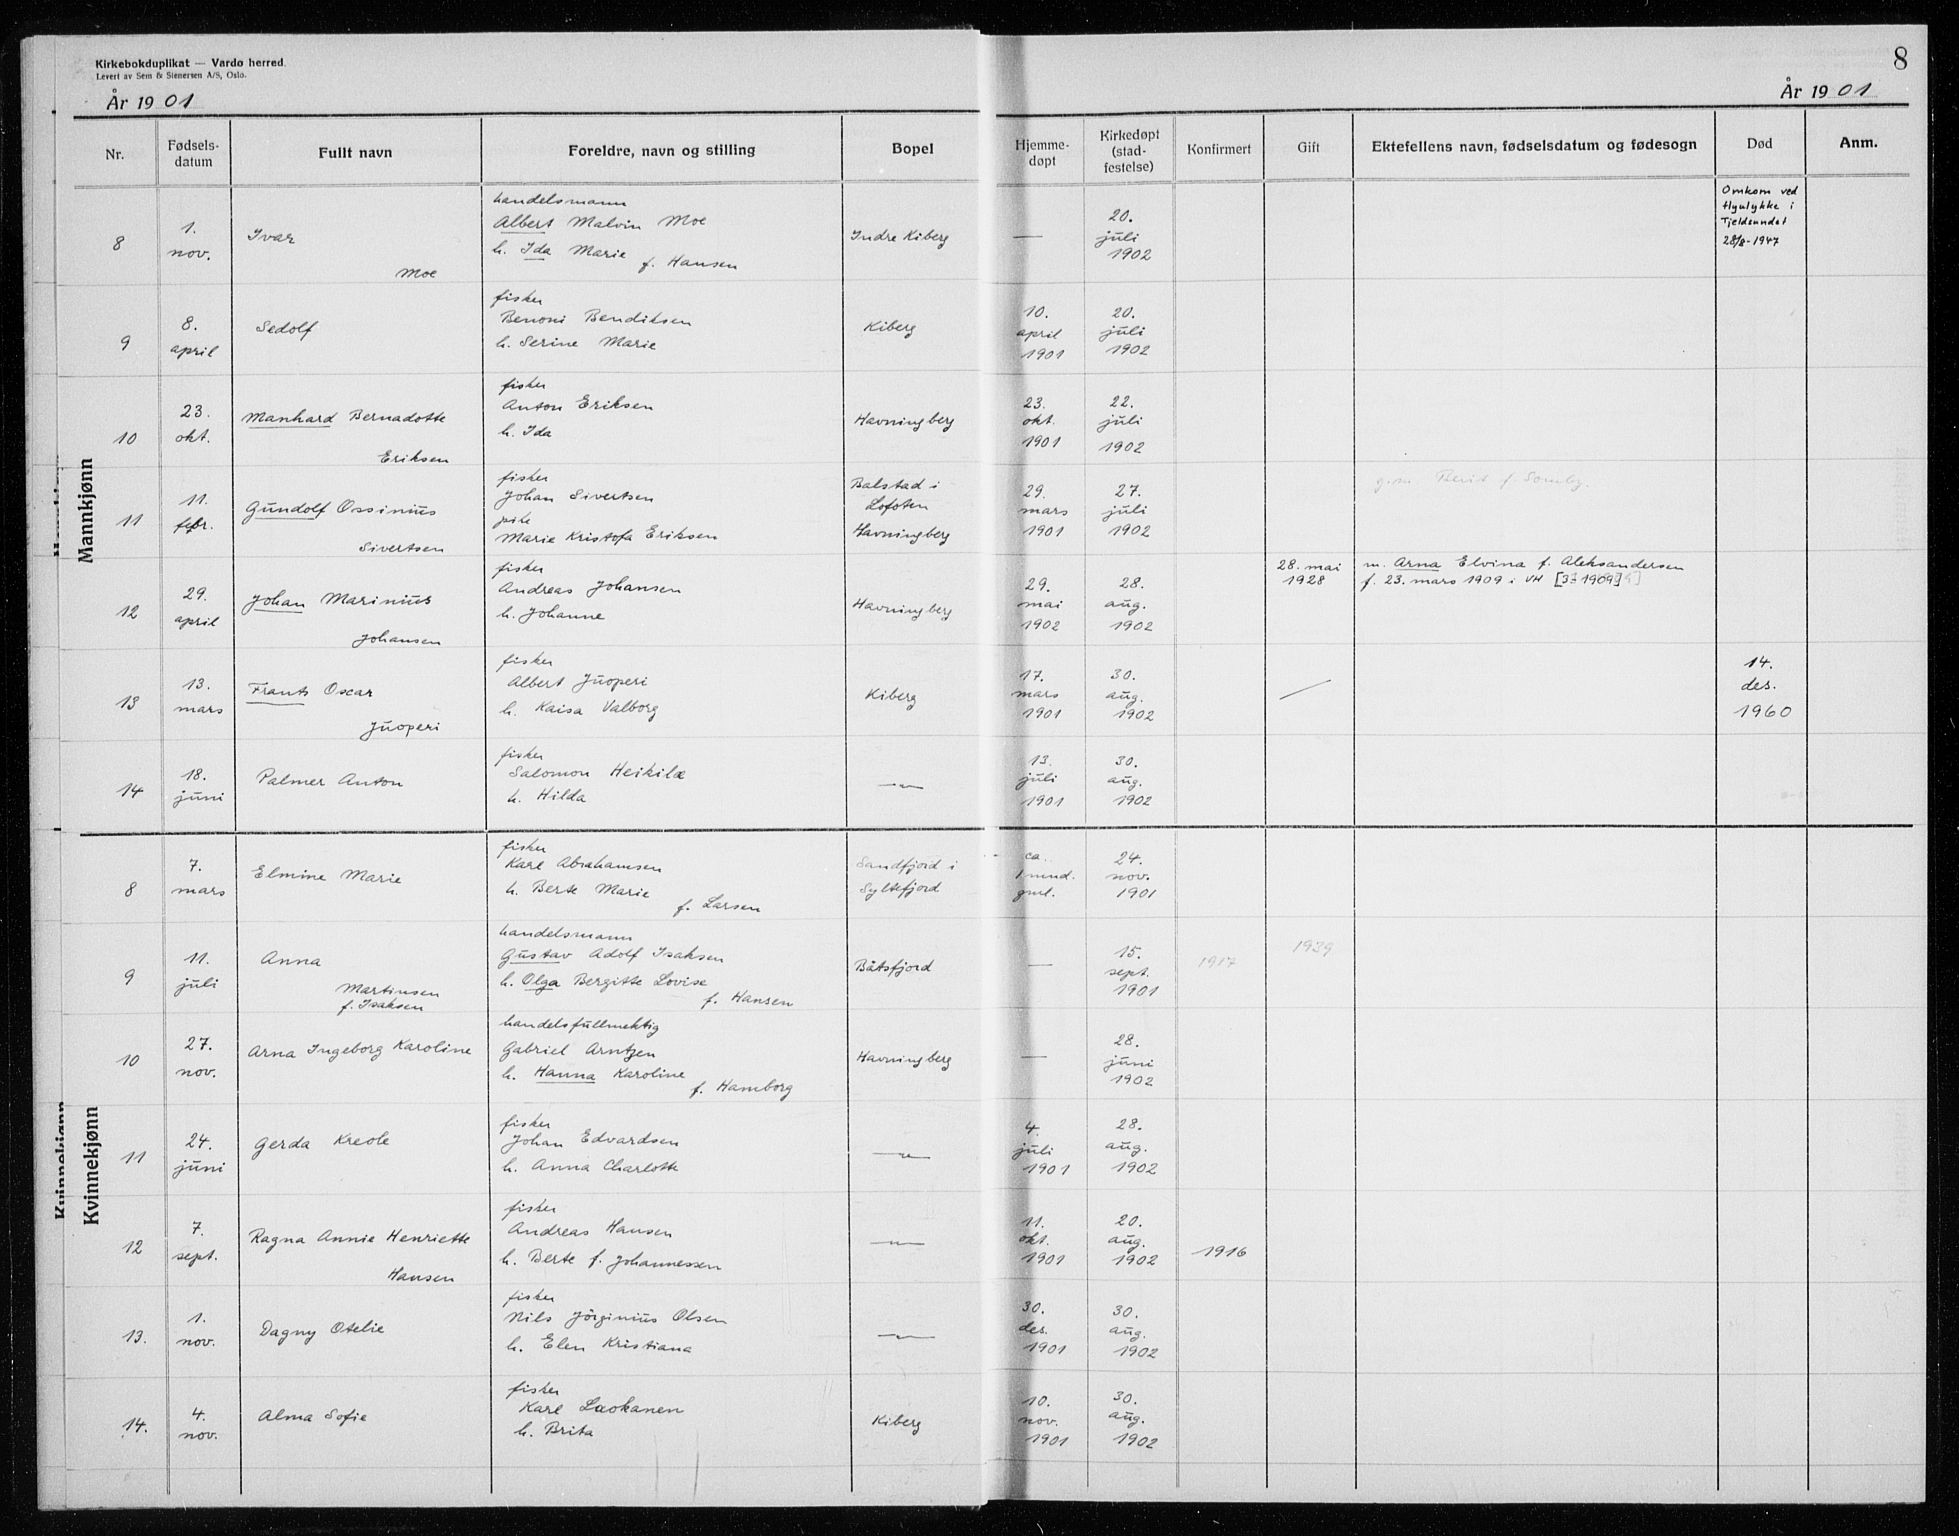 Kirkebokduplikat — Vardø herred.
Levert av Sem & Stenersen A/S, Oslo.
År 1901
8
År 1901
Nr.
Fødsels-
datum
Fullt navn
Foreldre, navn og stilling
Bopel
Hjemme-
døpt
Kirkedøpt
(stad-
festelse)
Konfirmert
Gift
Ektefellens navn, fødselsdatum og fødesogn
Død
Anm.
Mannkjønn
8
1.
nov.
Ivar
Moe
handelsmann
Albert Malvin Moe
h. Ida Marie f. Hansen
Indre Kiberg
—
20.
juli
1902
Omkom ved
flyulykke i
Tjeldsundet
28/8-1947
9
8.
april
Sedolf
fisker
Benoni Bendiksen
h. Serine Marie
Kiberg
10.
april
1901
20.
juli
1902
10
23.
okt.
Manhard Bernadotte
Eriksen
fisker
Anton Eriksen
h. Ida
Havningberg
23.
okt.
1901
22.
juli
1902
11
11.
febr.
Gundolf Ossinius
Sivertsen
fisker
Johan Sivertsen
pike
Marie Kristofa Eriksen
Balstad i
Lofoten
Havningberg
29.
mars
1901
27.
juli
1902
g.m. Berit f. Somby.
12
29.
april
Johan Marinius
Johansen
fisker
Andreas Johansen
h. Johanne
Havningberg
29.
mai
1902
28.
aug.
1902
28. mai
1928
m. Arna Elvina f. Aleksandersen
f. 23. mars 1909 i VH
13
13.
mars
Frants Oscar
Juoperi
fisker
Albert Juoperi
h. Kaisa Valborg
Kiberg
17.
mars
1901
30.
aug.
1902
14.
des.
1960
14
18.
juni
Palmer Anton
fisker
Salomon Heikilæ
h. Hilda
—"—
13.
juli
1901
30.
aug.
1902
Kvinnekjønn
8
7.
mars
Elmine Marie
fisker
Karl Abrahamsen
h. Berte Marie
f. Larsen
Sandfjord i
Syltefjord
ca.
1 mnd.
gml.
24.
nov.
1901
9
11.
juli
Anna
Martinsen
f. Isaksen
handelsmann
Gustav Adolf Isaksen
h. Olga Bergitte Lovise
f. Hansen
Båtsfjord
—
15.
sept.
1901
1917
1939
10
27.
nov.
Arna Ingeborg Karoline
handelsfullmektig
Gabriel Arntzen
h. Hanna Karoline
f. Hamborg
Havningberg
—
28.
juni
1902
11
24.
juni
Gerda Kreole
fisker
Johan Edvardsen
h. Anna Charlotte
—"—
4.
juli
1901
28.
aug.
1902
12
7.
sept.
Ragna Annie Henriette
Hansen
fisker
Andreas Hansen
h. Berte f. Johannessen
—"—
11.
okt.
1901
20.
aug.
1902
1916
13.
1.
nov.
Dagny Otelie
fisker
Nils Jörginius Olsen
h. Elen Kristiana
—"—
30.
des.
1901
30.
aug.
1902
14.
4.
nov.
Alma Sofie
fisker
Karl Laokanen
h. Brita
Kiberg
10.
nov.
1901
30.
aug.
1902